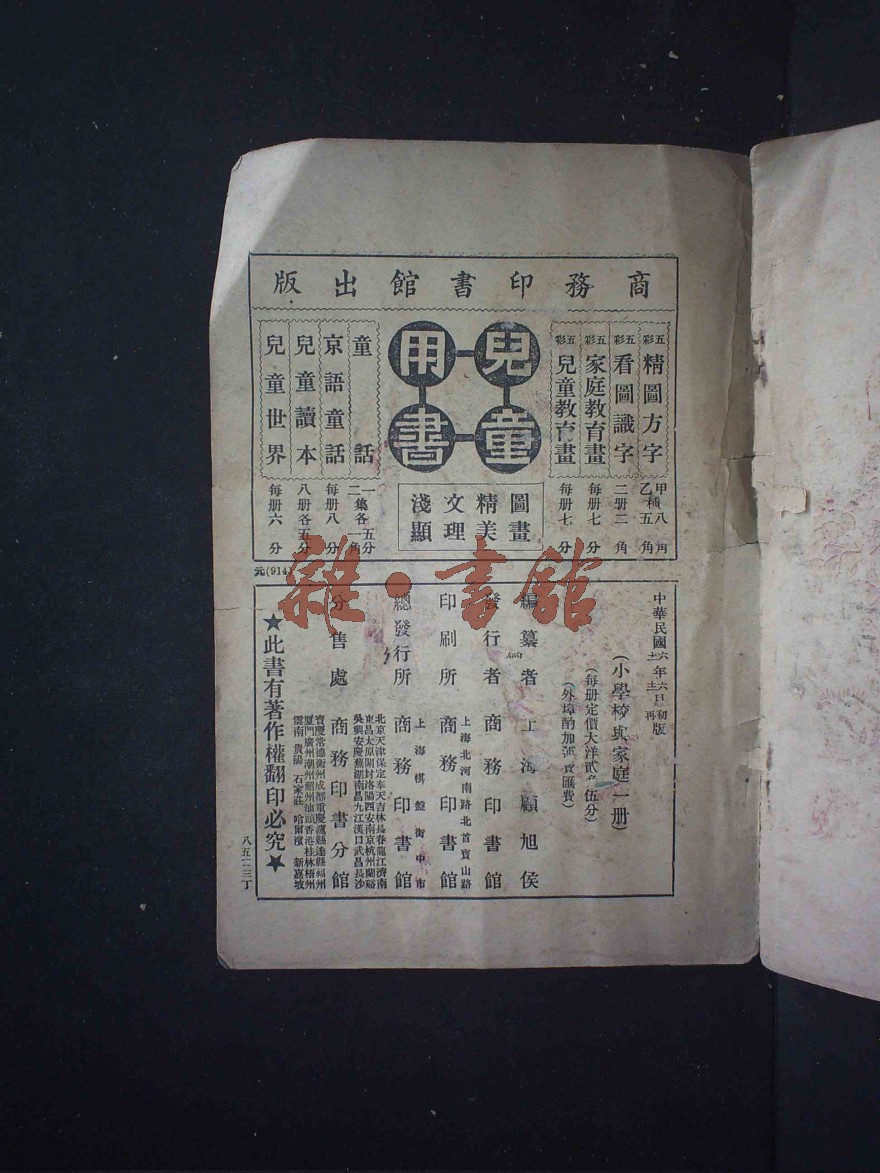 商務印書館出版
五彩精圖方字 甲種八角 乙種五角
五彩看圖識字 二册二角
五彩家庭教育畫 每册七分
五彩兒童教育畫 每册七分
兒童用書
圖畫精美文理淺顯
童話 一集各五分 二集各一角
京語童話 每册八分
兒童讀本 八册各五分
兒童世界 每册六分
元(914)
中華民國
年六
版
(小學校與家庭一册)
(每册定價大洋貳角伍分)
(外埠酌加運費匯費)
編纂者 上海顧旭侯
發行者 商務印書館
印刷所 上海北河南路北首寶山路 商務印書館
總發行所 上海棋盤街中市 商務印書館
分售處 商務印書分館
北京天津保定奉天吉林長春龍江濟南
東昌太原開封洛陽西安南京杭州蘭谿
吳興安慶蕪湖南昌九江漢口武昌長沙
寶慶常德衡州成都重慶瀘縣達縣福州
廈門廣州潮州韶州汕頭香港桂林梧州
雲南 貴陽 石家莊 哈爾濱 新嘉坡
★此書有著作權翻印必究★
雜·書館